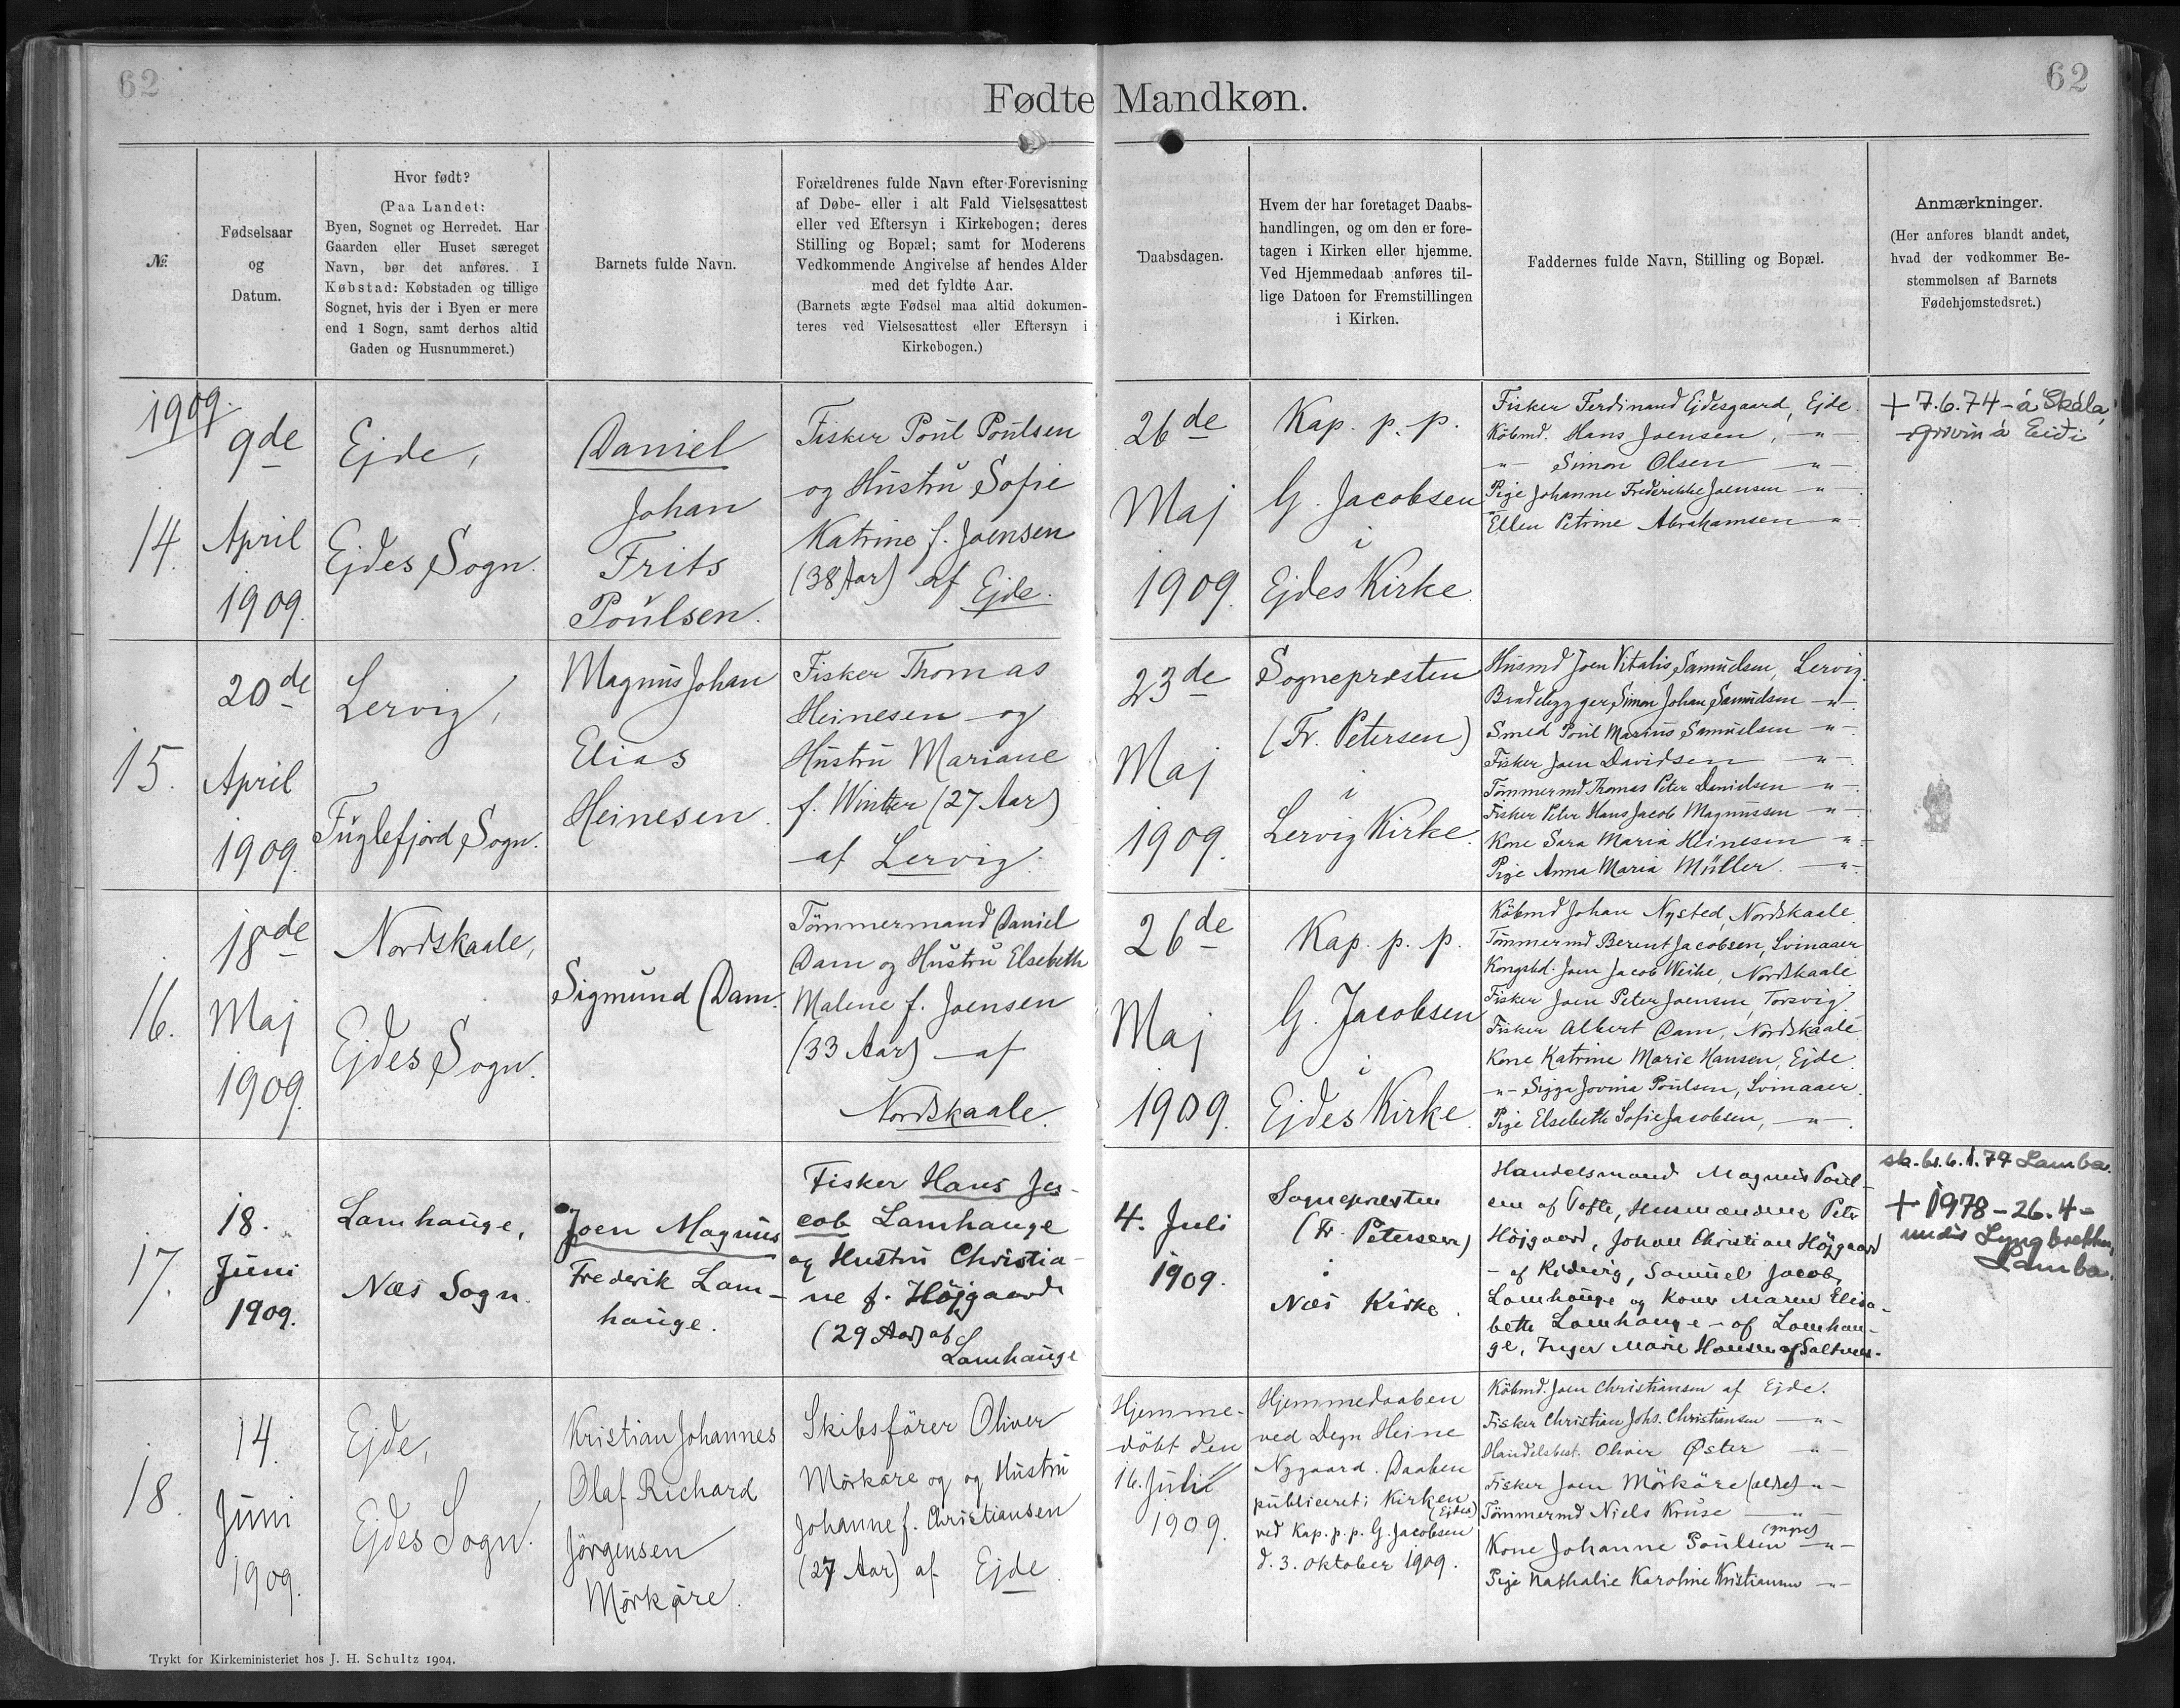 62
62
Fødte Mandkøn.
№
Fødselsaar
og
Datum.
Hvor født?
(Paa Landet:
Byen, Sognet og Herredet. Har
Gaarden eller Huset særeget
Navn, bør det anføres. I
Købstad: Købstaden og tillige
Sognet, hvis der i Byen er mere
end 1 Sogn, samt derhos altid
Gaden og Husnummeret.)
Barnets fulde Navn.
Forældrenes fulde Navn efter Forevisning
af Døbe- eller i alt Fald Vielsesattest
eller ved Eftersyn i Kirkebogen; deres
Stilling og Bopæl; samt for Moderens
Vedkommende Angivelse af hendes Alder
med det fyldte Aar.
(Barnets ægte Fødsel maa altid dokumen-
teres ved Vielsesattest eller Eftersyn i
Kirkebogen.)
Daabsdagen.
Hvem der har foretaget Daabs-
handlingen, og om den er fore-
tagen i Kirken eller hjemme.
Ved Hjemmedaab anføres til-
lige Datoen for Fremstillingen
i Kirken.
Faddernes fulde Navn, Stilling og Bopæl.
Anmærkninger.
(Her anføres blandt andet,
hvad der vedkommer Be-
stemmelsen af Barnets
Fødehjemstedsret.)
1909.
14.
9de
April
1909.
Ejde,
Ejdes Sogn.
Daniel
Johan
Frits
Poulsen.
Fisker Poul Poulsen
og Hustru Sofie
Katrine f. Joensen
(38 Aar) af Ejde.
26de
Maj
1909.
Kap. p. p.
G. Jacobsen
i
Ejdes Kirke
Fisker Ferdinand Ejdesgaard, Ejde.
Købmd. Hans Joensen, -"-
-"- Simon Olsen -"-
Pige Johanne Frederikke Joensen -"-
Ellen Petrine Abrahamsen -"-
+ 7.6.74 - á Skála,
grivin á Eiði
15.
20de
April
1909.
Lervig,
Fuglefjord Sogn.
Magnus Johan
Elias
Heinesen.
Fisker Thomas
Heinesen og
Hustru Mariane
f. Winter (27 Aar)
af Lervig.
23de
Maj
1909.
Sognepræsten
(Fr. Petersen)
i
Lervig Kirke.
Husmd Joen Vitalis Samuelsen, Lervig.
Simon Johan Samuelsen -"-
Smed Poul Marius Samuelsen -"-
Fisker Joen Davidsen -"-
Tømmermd Thomas Peter Danielsen -"-
Fisker Peter Hans Jacob Magnussen -"-
Kone Sara Maria Heinesen -"-
Pige Anna Maria Müller. -"-
16.
18de
Maj
1909.
Nordskaale,
Ejdes Sogn.
Sigmund Dam.
Tömmermand Daniel
Dam og Hustru Elsebeth
Malene f. Joensen
(33 Aar) af
Nordskaale.
26de
Maj
1909.
Kap. p. p.
G. Jacobsen
i
Ejdes Kirke.
Købmd Johan Nysted, Nordskaale.
Tømmermd Berent Jacobsen, Svinaaer
Joen Jacob Weihe, Nordskaale
Fisker Joen Peter Joensen, Torsvig
Fisker Albert Dam, Nordskaale
Kone Katrine Marie Hansen, Ejde.
-"- Sigga Jovina Poulsen, Svinaaer.
Pige Elsebeth Sofie Jacobsen, -"-
17.
18.
Juni
1909.
Lamhauge,
Næs Sogn.
Joen Magnus
Frederik Lam-
hauge.
Fisker Hans Ja-
cob Lamhauge
og Hustru Christia-
ne f. Højgaard
(29 Aar) af
Lamhauge
4. Juli
1909.
Sognepræsten
(Fr. Petersen)
i
Næs Kirke.
Handelsmand Magnus Poul-
sen af Tofte, Husmændene Peter
Højgaard, Johan Christian Højgaard
- af Ridevig, Samuel Jacob
Lamhauge og Kone Maren Elisa-
beth Lamhauge - af Lamhau-
ge, Inger Marie Hansen af Saltnes.
sk. br. 6.1.74 Lamba.
+ 1978 - 26.4 -
Lamba.
18.
14.
Juni
1909.
Ejde,
Ejdes Sogn.
Kristian Johannes
Olaf Richard
Jörgensen
Mörköre.
Skibsförer Oliver
Mörköre og og Hustru
Johanne f. Christiansen
(27 Aar) af Ejde.
Hjemme-
döbt den
16. Juli
1909.
Hjemmedaaben
ved Degn Heine
Nygaard. Daaben
publiceret i Kirken
(Ejdes)
ved Kap. p. p. G. Jacobsen
d. 3. Oktober 1909.
Købmd. Joen Christiansen af Ejde.
Fisker Christian Johs. Christiansen -"-
Handelsbest. Oliver Øster -"-
Fisker Joen Mörköre (ældre) -"-
Tømmermd Niels Kruse -"-
(yngre)
Kone Johanne Poulsen -"-
Pige Nathalie Karoline Kristiansen -"-
Trykt for Kirkeministeriet hos J. H. Schultz 1904.